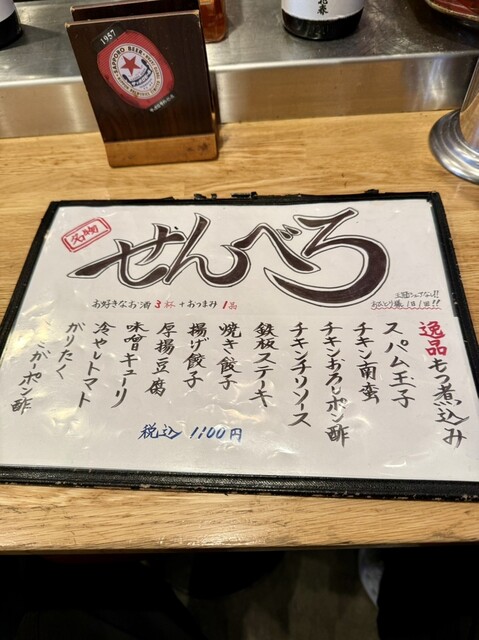 1957
SAPPORO BEER
名物
せんべろ
お好きなお酒3杯+おつまみ1品
お一人様1日1回!!
逸品もつ煮込み
スパム玉子
チキン南蛮
チキンおろしポン酢
チキンチリソース
鉄板ステーキ
焼き餃子
揚げ餃子
厚揚豆腐
味噌キューリ
冷やしトマト
がりたく
ミガーポン酢
税込1100円